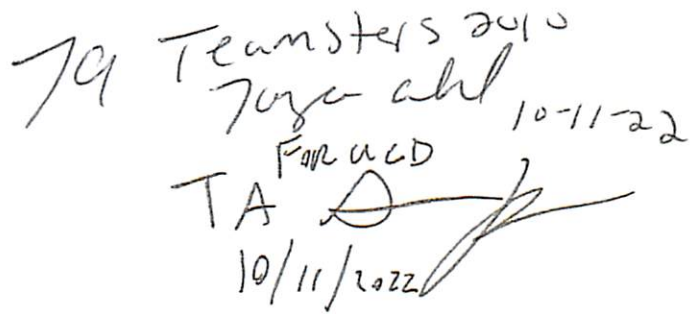 TA Teamsters 2010
10-11-22
FOR UCD
TA
10/11/2022